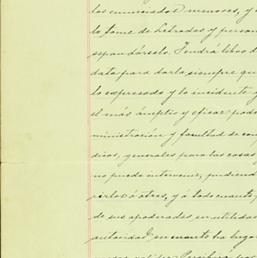 los enunciados menores, y
lo tome de Letrados y person
sepan dárselo. Tendrá libro d
data para darla siempre qu
lo expresado y lo incidente y
el más ámplio y eficaz pode
ministración y facultad de con
dios, generales para las cosas
no pueda intervenir, pudiend
irlo á otros, y á todo cuanto
de sus apoderados en utilidad
autoridad en cuanto ha lugar